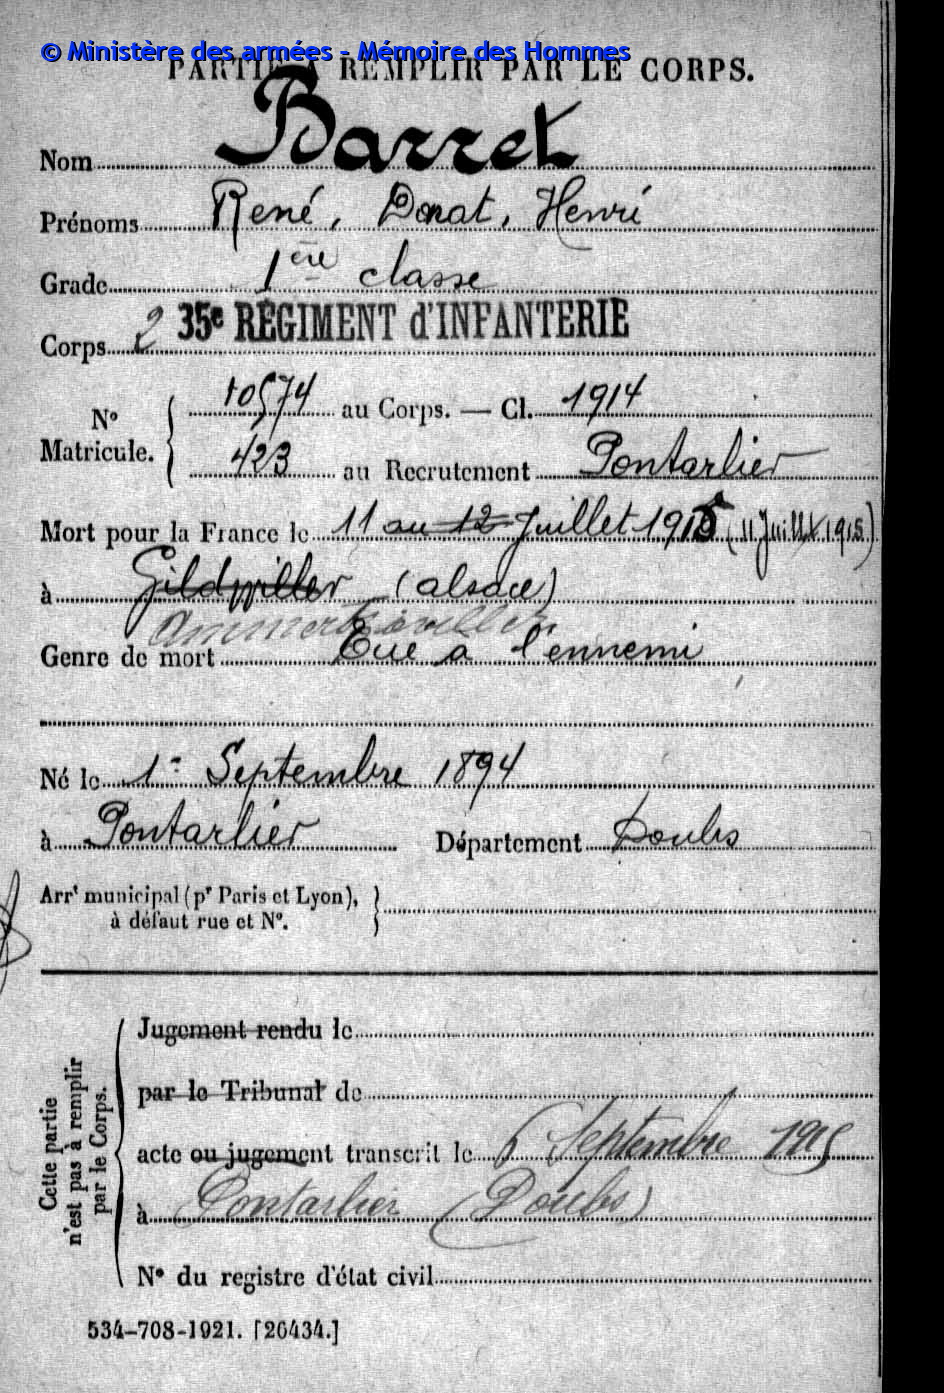 © Ministère des armées - Mémoire des Hommes
PARTIE A REMPLIR PAR LE CORPS.
Nom Barret
Prénoms René, Donat, Henri
Grade 1ère classe
Corps 2 35e RÉGIMENT d'INFANTERIE
No Matricule. { 10574 au Corps. — Cl. 1914
423 au Recrutement Pontarlier
Mort pour la France le 11 au 12 Juillet 1915 (11 Juillet 1915)
à Gildwiller (alsace)
Ammertzwiller
Genre de mort Tué à l'ennemi
Né le 1er Septembre 1894
à Pontarlier Département Doubs
Arrt municipal (pr Paris et Lyon),
à défaut rue et No.
Cette partie
n'est pas à remplir
par le Corps.
Jugement rendu le
par le Tribunal de
acte ou jugement transcrit le 6 Septembre 1915
à Pontarlier (Doubs)
No du registre d'état civil
534-708-1921. [26434.]